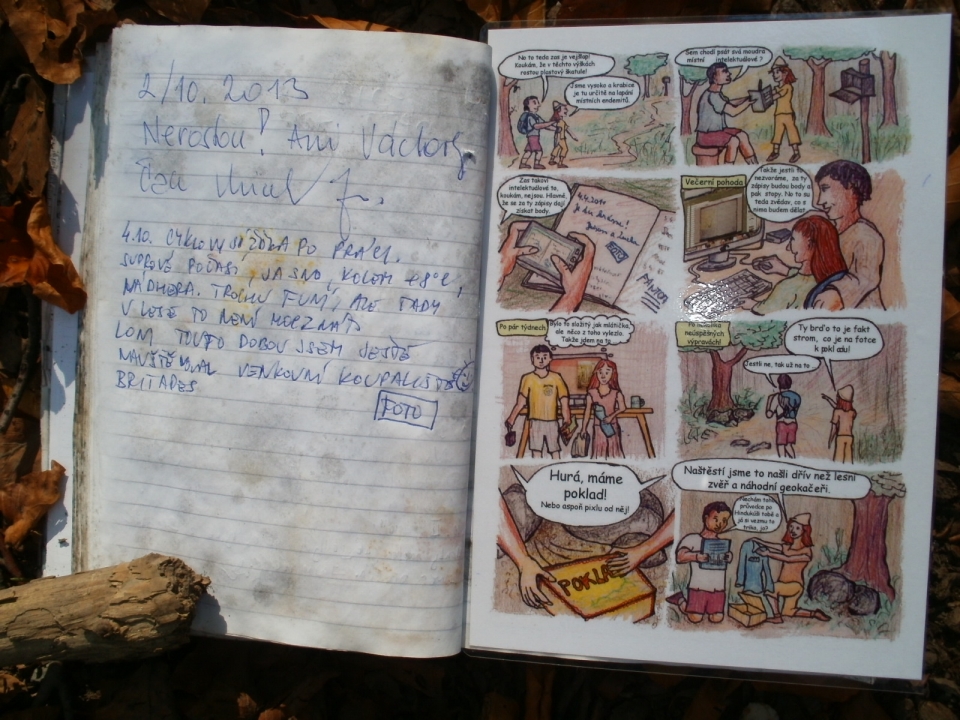 2/10. 2013
Nerostou! Ani Václav,
4.10. CYKLOVYJÍŽĎKA PO PRÁCI.
SUPROVÉ POČASÍ, JASNO, KOLEM +8°C,
NÁDHERA. TROCHU FUNÍ, ALE TADY
V LESE TO NENÍ
LONI TOUTO DOBOU JSEM JEŠTĚ
VENKOVNÍ KOUPALIŠTĚ
FOTO
No to teda zas je vejšlap!
Koukám, že v těchto výškách
rostou plastový škatule!
Jsme vysoko a krabice
je tu určitě na lapání
místních endemitů.
Sem chodí psát svá moudra
místní intelektuálové?
Zas takoví
intelektuálové to,
koukám, nejsou. Hlavně,
že se za ty zápisy dají
získat body.
4.4.2011
Večerní pohoda
Takže jestli to
nezvoráme, za ty
zápisy budou body a
pak stopy. No to su
teda zvědav, co s
nima budem dělat.
Po pár týdnech
Bylo to složitý jak mlátička,
ale něco z toho vylezlo.
Takže jdem na to
Po několika
neúspěšných
výpravách!
Jestli ne, tak už na to ...
Ty brďo to je fakt
strom, co je na fotce
k pokladu!
Hurá, máme
poklad!
Nebo aspoň pixlu od něj!
POKLAD
Naštěstí jsme to našli dřív než lesní
zvěř a náhodní geokačeři.
Nechám toho
průvodce po
Hindúkúši tobě a
já si vezmu to
triko, jo?